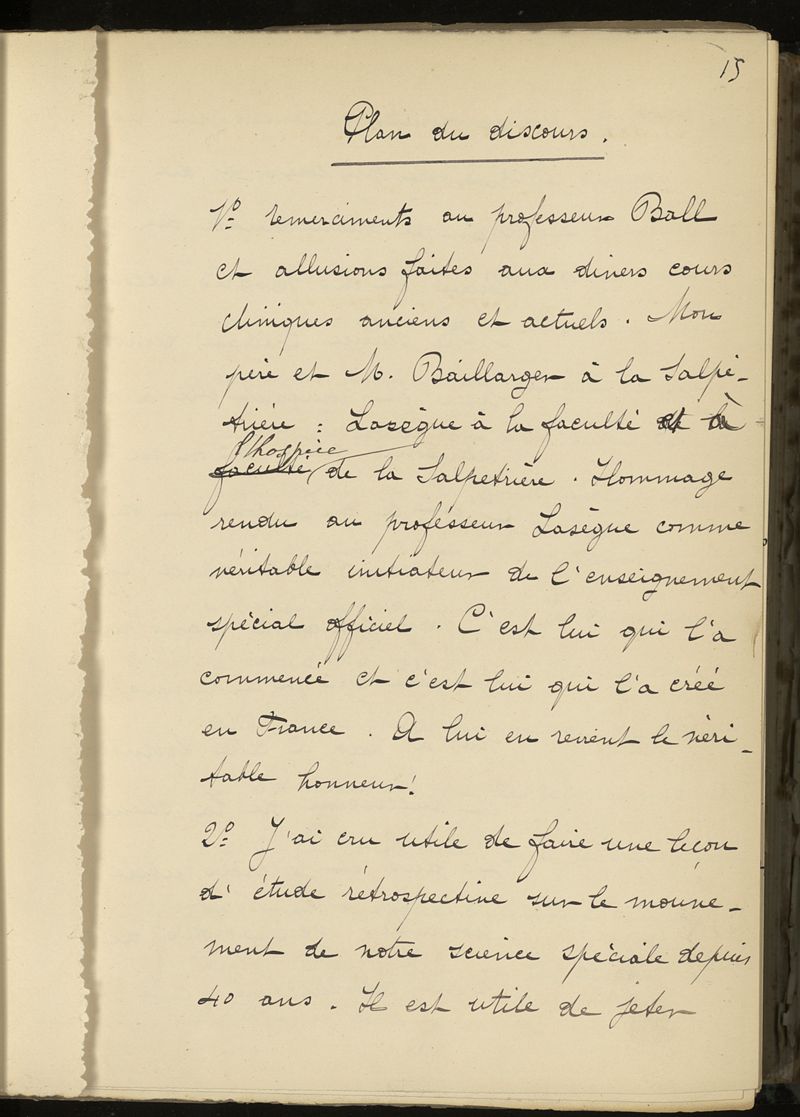 15
Plan du discours.
1º remerciments au professeur Ball
et allusions faites aux divers cours
cliniques anciens et actuels. Mon
père et M. Baillarger à la Salpê-
trière : Lasègue à la faculté et à
l'hospice
faculté de la Salpetrière. Hommage
rendu au professeur Lasègue comme
véritable initiateur de l'enseignement
spécial officiel. C'est lui qui l'a
commencé et c'est lui qui l'a créé
en France. A lui en revient le véri-
table honneur!
2º J'ai cru utile de faire une leçon
d'étude rétrospective sur le mouve-
ment de notre science spéciale depuis
40 ans. Il est utile de jeter